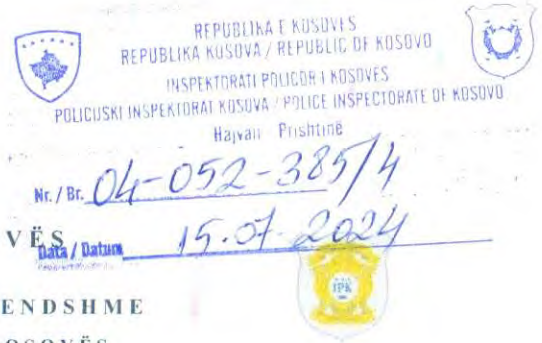 REPUBLIKA E KOSOVËS
REPUBLIKA KOSOVA / REPUBLIC OF KOSOVO
INSPEKTORATI POLICOR I KOSOVËS
POLICIJSKI INSPEKTORAT KOSOVA / POLICE INSPECTORATE OF KOSOVO
Hajvali Prishtinë
Nr. / Br. 04-052-385/4
VËS
Data / Datum 15.07.2024
IPK
ENDSHME
OSOVËS